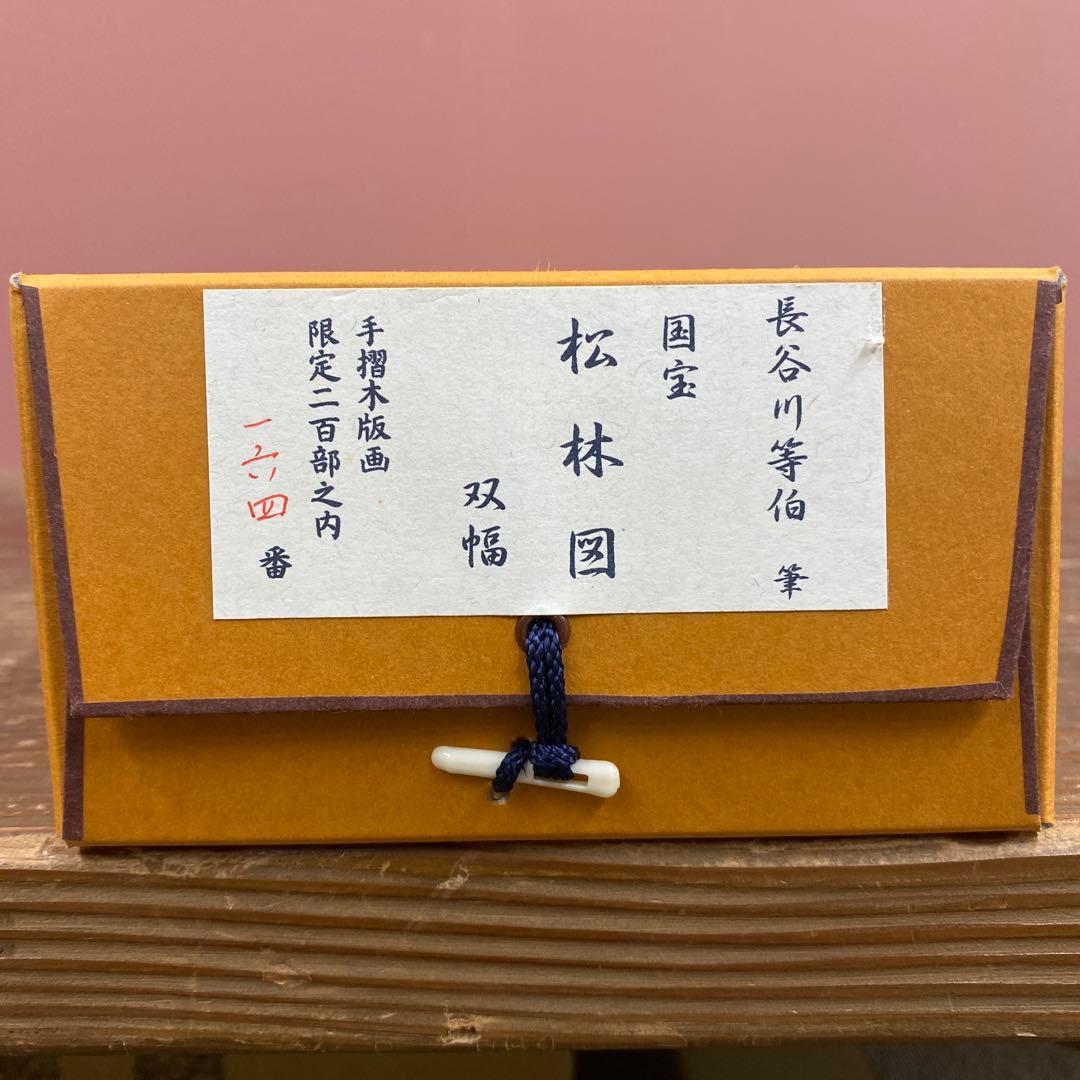 長谷川等伯 筆
国宝
松林図
双幅
手摺木版画
限定二百部之内
一六四番